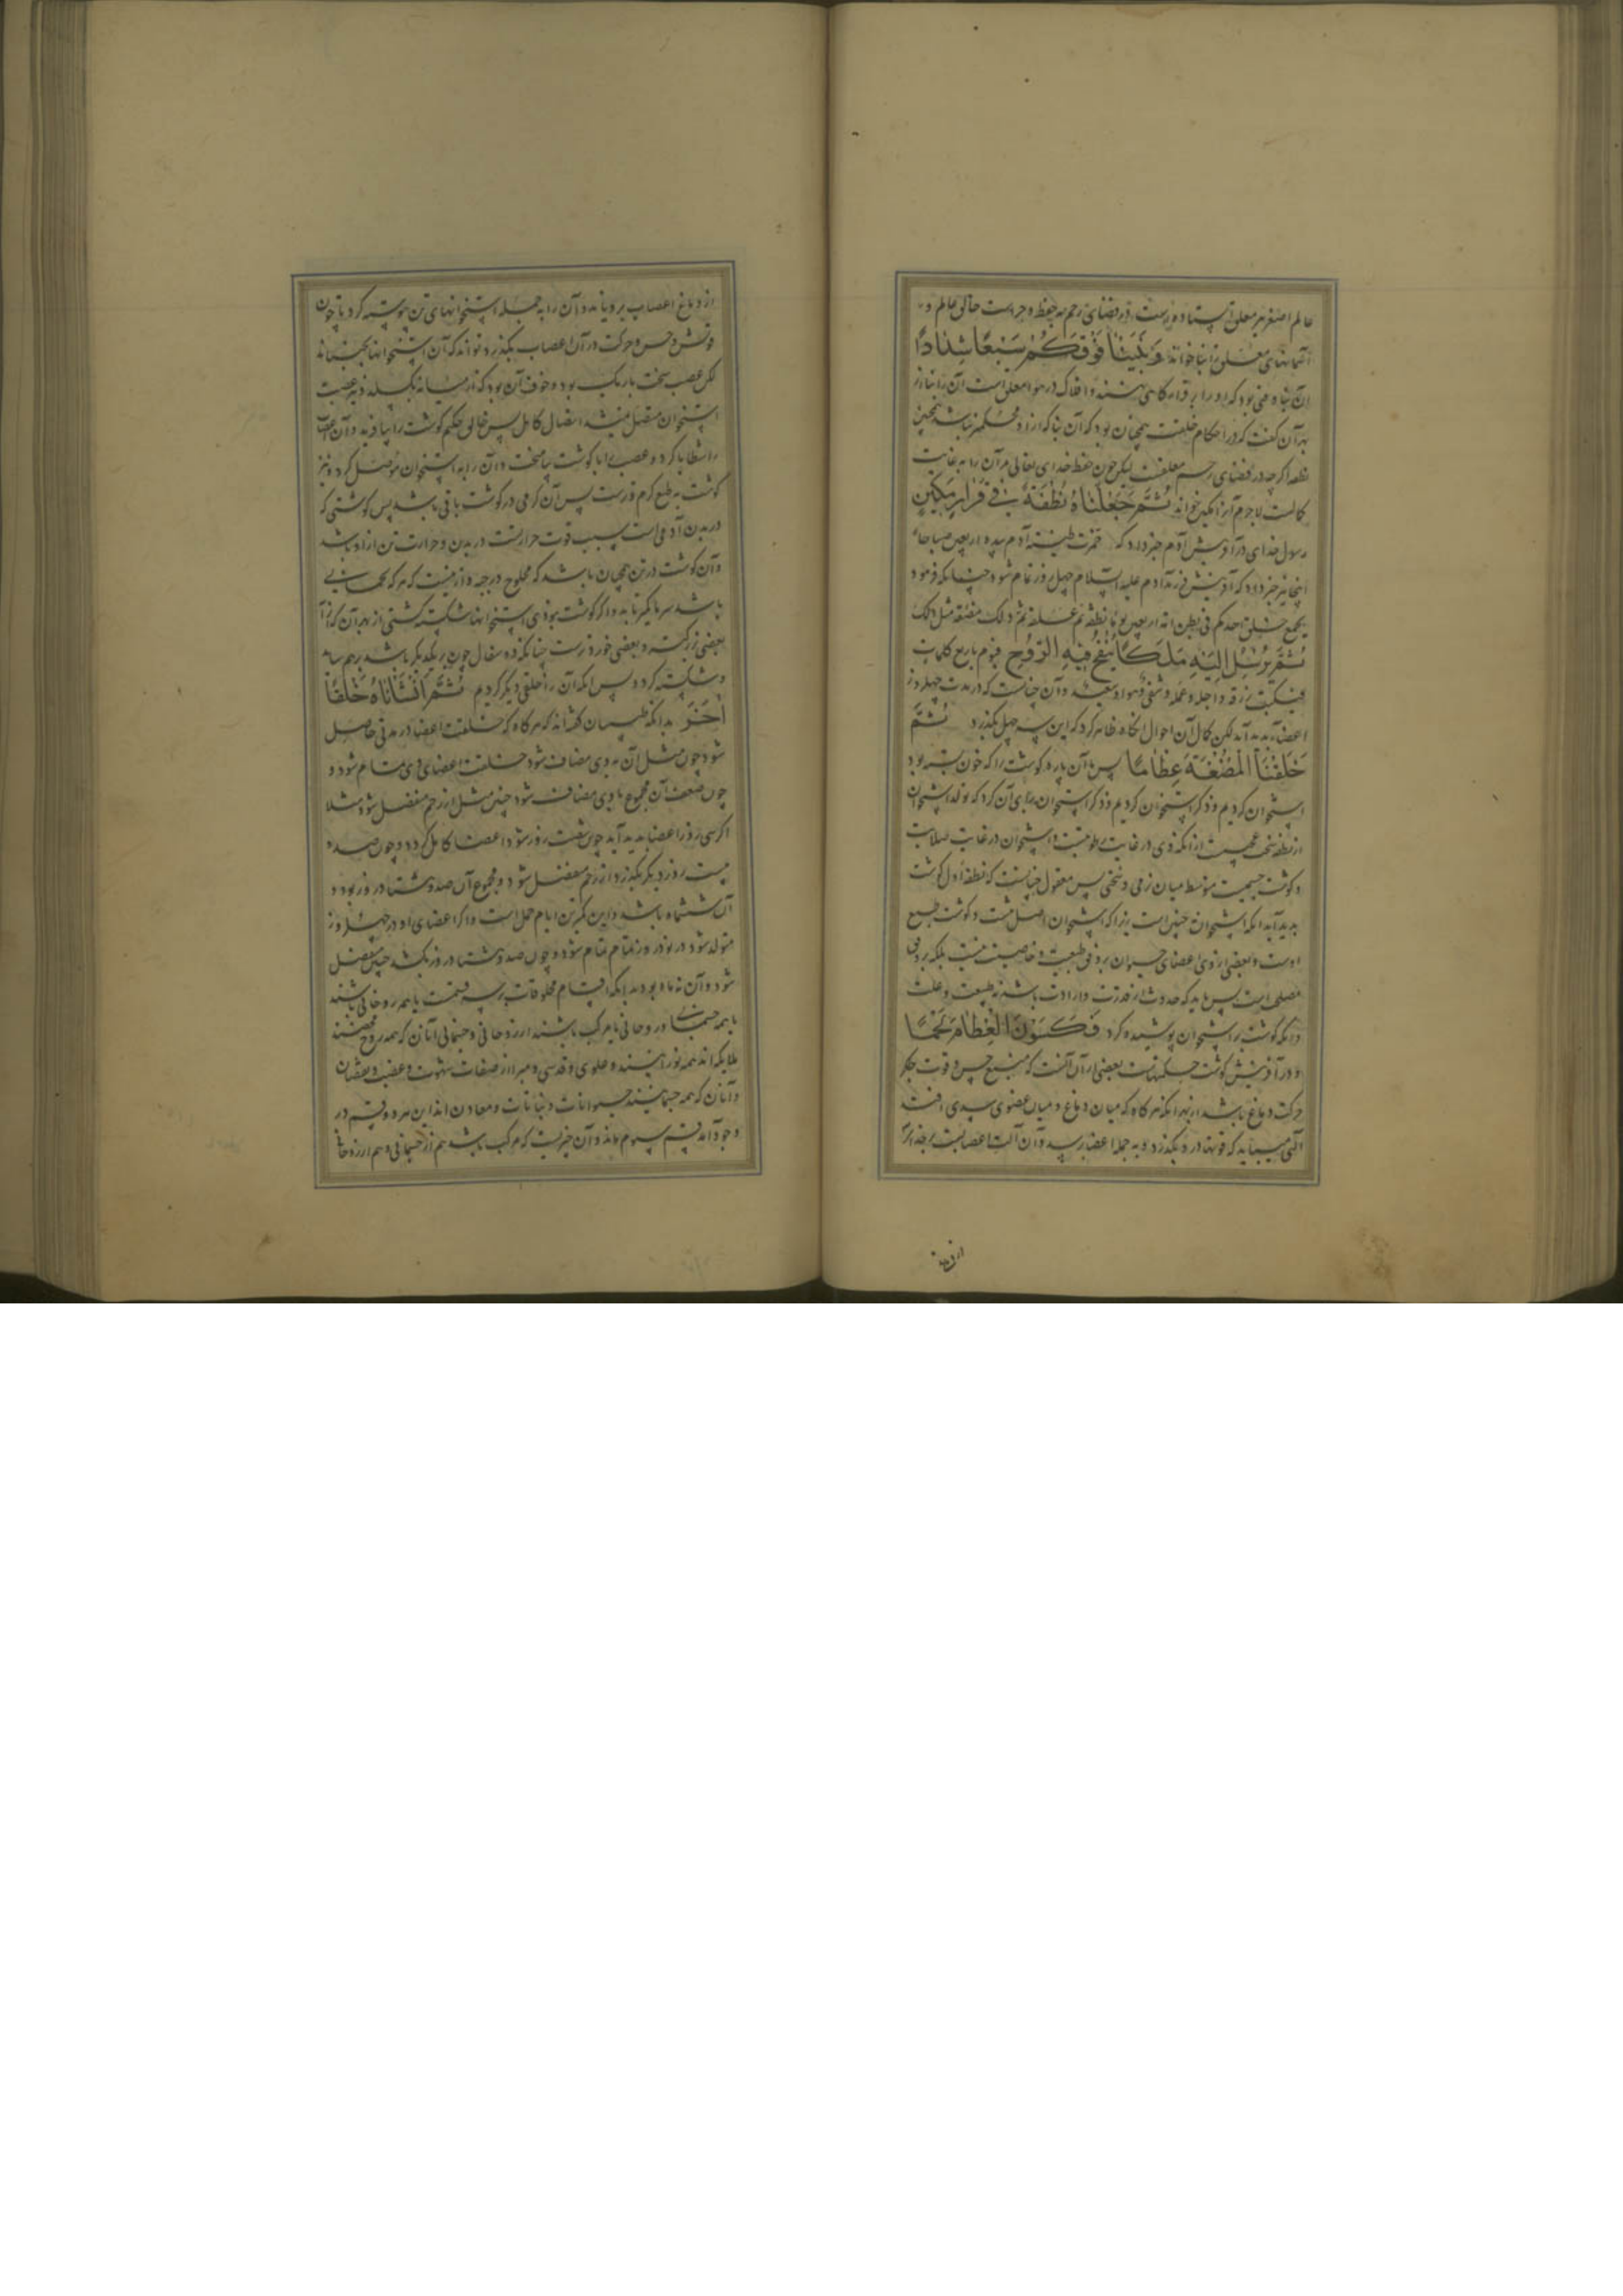 عالم اصغر نیز معلق ایستاده است در فضای رحم به حفظ و حراست خالق عالم و
آسمانهای معلق را بنا خواند وَبَنَيْنَا فَوْقَكُمْ سَبْعًا شِدَادًا
آن بناه فنی بود که او را بر قرارگاهی نهند و افلاک در هوا معلق است آن را بنا از
بهر آن گفت که در احکام خلقت همچنان بود که آن بنا که از او محکمتر نباشد همچنین
نطفه اگرچه در فضای رحم معلقست لیکن چون حفظ خدای تعالی مر آن را به غایت
کمالست لاجرم آن را مکین خواند ثُمَّ جَعَلْنَاهُ نُطْفَةً فِي قَرَارٍ مَكِينٍ
رسول خدای در آفرینش آدم خبر داد که خمرت طینة آدم بیده اربعین صباحا
اینجا نیز خبر داد که آفرینش فرزند آدم علیه السلام چهل روز تمام شود چنانکه فرمود
یجمع خلق احدکم فی بطن امه اربعین یوما نطفة ثم علقة مثل ذلک ثم مضغة مثل ذلک
ثُمَّ يُرْسَلُ إِلَيْهِ مَلَكًا يَنْفُخُ فِيهِ الرُّوحَ فیؤمر باربع کلمات
فیکتب رزقه و اجله و عمله و شقی هو او سعید و آن چنانست که در مدت چهل روز
اعضا پدید آید لکن کمال آن احوال آنگاه ظاهر گردد که این سه چهل بگذرد ثُمَّ
خَلَقْنَا الْمُضْغَةَ عِظَامًا پس ما آن پاره گوشت را که خون بسته بود
استخوان کردیم و ذکر استخوان کردیم و ذکر استخوان برای آن کرد که تولد استخوان
از نطفه سخت عجیبست از آنکه وی در غایت رطوبتست و استخوان در غایت صلابت
و گوشت جسمیست متوسط میان نرمی و سختی پس معقول چنانست که نطفه اول گوشت
پدید آید آنگه استخوان نه چنین است زیرا که استخوان اصل تنست و گوشت تبع
اوست و بعضی از وی اعضای حیوان بر وفق طبیعت و خاصیت نیست بلکه بر وفق
مصلحت است پس باید که حدوث از قدرت و ارادت باشد نه طبیعت و علت
و آنگه گوشت بر استخوان پوشیده کرد فَكَسَوْنَا الْعِظَامَ لَحْمًا
و در آفرینش گوشت حکمتهاست بعضی از آن آنست که منبع حس و قوت جگر
حرکت دماغ باشد از بهر آنکه هرگاه که میان دماغ و میان عضوی سدی افتد
آلتی میباید که قوتها در وی بگذرد و به جمله اعضا رسد و آن آلت اعصابست
از دماغ اعصاب برویانید و آن را به جمله استخوانهای تن پیوسته کرد تا چون
قوتش و حس و حرکت در آن اعصاب بگذرد تواند که آن استخوانها بجنباند
لکن عصب سخت باریک بود و خوف آن بود که از میانه بگسلد نیز عصب
استخوان متصل نمیشد اتصال کامل پس خالق حکیم گوشت را بیافرید و آن عصب
را شظایا کرد و عصب را با گوشت بیامیخت و آن را به استخوان متصل کرد و نیز
گوشت به طبع گرم ترست پس آن گرمی در گوشت باقی باشد پس گوشتی که
در بدن آدمی است سبب قوت حرارتست در بدن و حرارت تن از او باشد
و آن گوشت در تن همچنان باشد که محلوج در جبه و ازینست که هر که لحمانی
باشد سرما کمتر یابد و اگر گوشت نبودی استخوانها شکسته گشتی از بهر آن که از آن
بعضی بزرگست و بعضی خوردترست چنانکه ده سفال چون بر یکدیگر باشد برهم ساید
و شکسته گردد پس آنگه آن را خلقی دیگر کردیم ثُمَّ أَنْشَأْنَاهُ خَلْقًا
آخَرَ بدانکه طبیبان گفته‌اند که هرگاه که خلقت اعضا در مدتی حاصل
شود چون مثل آن به وی مضاف شود خلقت اعضای وی تمام شود و
چون ضعف آن مجموع با وی مضاف شود جنین مثل از رحم منفصل شود مثلا
اگر سی روز را اعضا پدید آید چون شصت روز شود اعضا کامل گردد و چون صد و
بیست روز دیگر بگذرد از رحم منفصل شود و مجموع آن صد و هشتاد روز بود و
آن ششماه باشد و این کمترین ایام حمل است و اگر اعضای او در چهل و پنج روز
متولد شود در نود روز تمام تمام شود و چون صد و هشتاد روز بگذشت جنین منفصل
شود و آن نه ماه بود بدانکه اقسام مخلوقات بر سه قسمت یا همه روحانی باشند
یا همه جسمانی و روحانی یا مرکب باشند از روحانی و جسمانی آنان که همه روح محضند
ملایکه‌اند همه نورانیند و علوی و قدسی و مبرا از صفات شهوت و غضب و نقصان
و آنان که همه جسمانیند حیوانات و نباتات و معادن‌اند این هر دو قسم در
وجود آمد قسم سیوم ماند و آن چیزیست که مرکب باشد هم از جسمانی و هم از روحانی